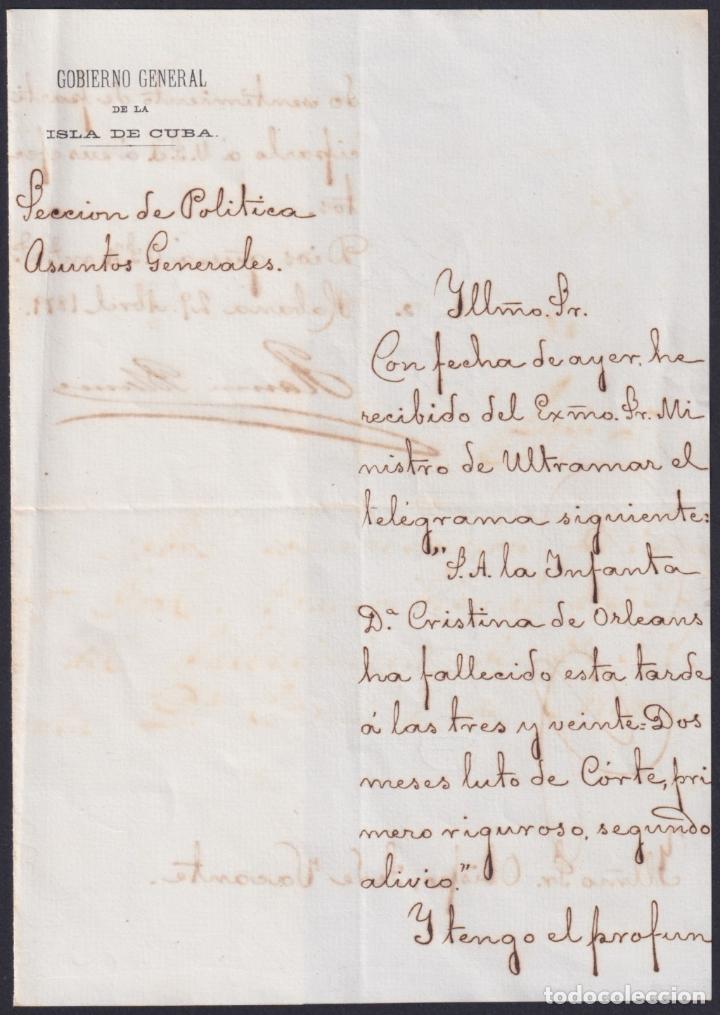 GOBIERNO GENERAL
DE LA
ISLA DE CUBA.
Seccion de Politica
Asuntos Generales.
Yllm̃o. Sr.
Con fecha de ayer, he
recibido del Exm̃o. Sr. Mi
nistro de Ultramar el
telégrama siguiente:
"S. A. la Infanta
D.ª Cristina de Orleans
ha fallecido esta tarde
á las tres y veinte=Dos
meses luto de Córte, pri
mero riguroso, segundo
alivio."
Y tengo el profun
do sentimiento de parti
ciparlo a V.S.I.
Dios
Habana 29. Abril
Yllm̃o Sr. Vacante.
todocoleccion.net